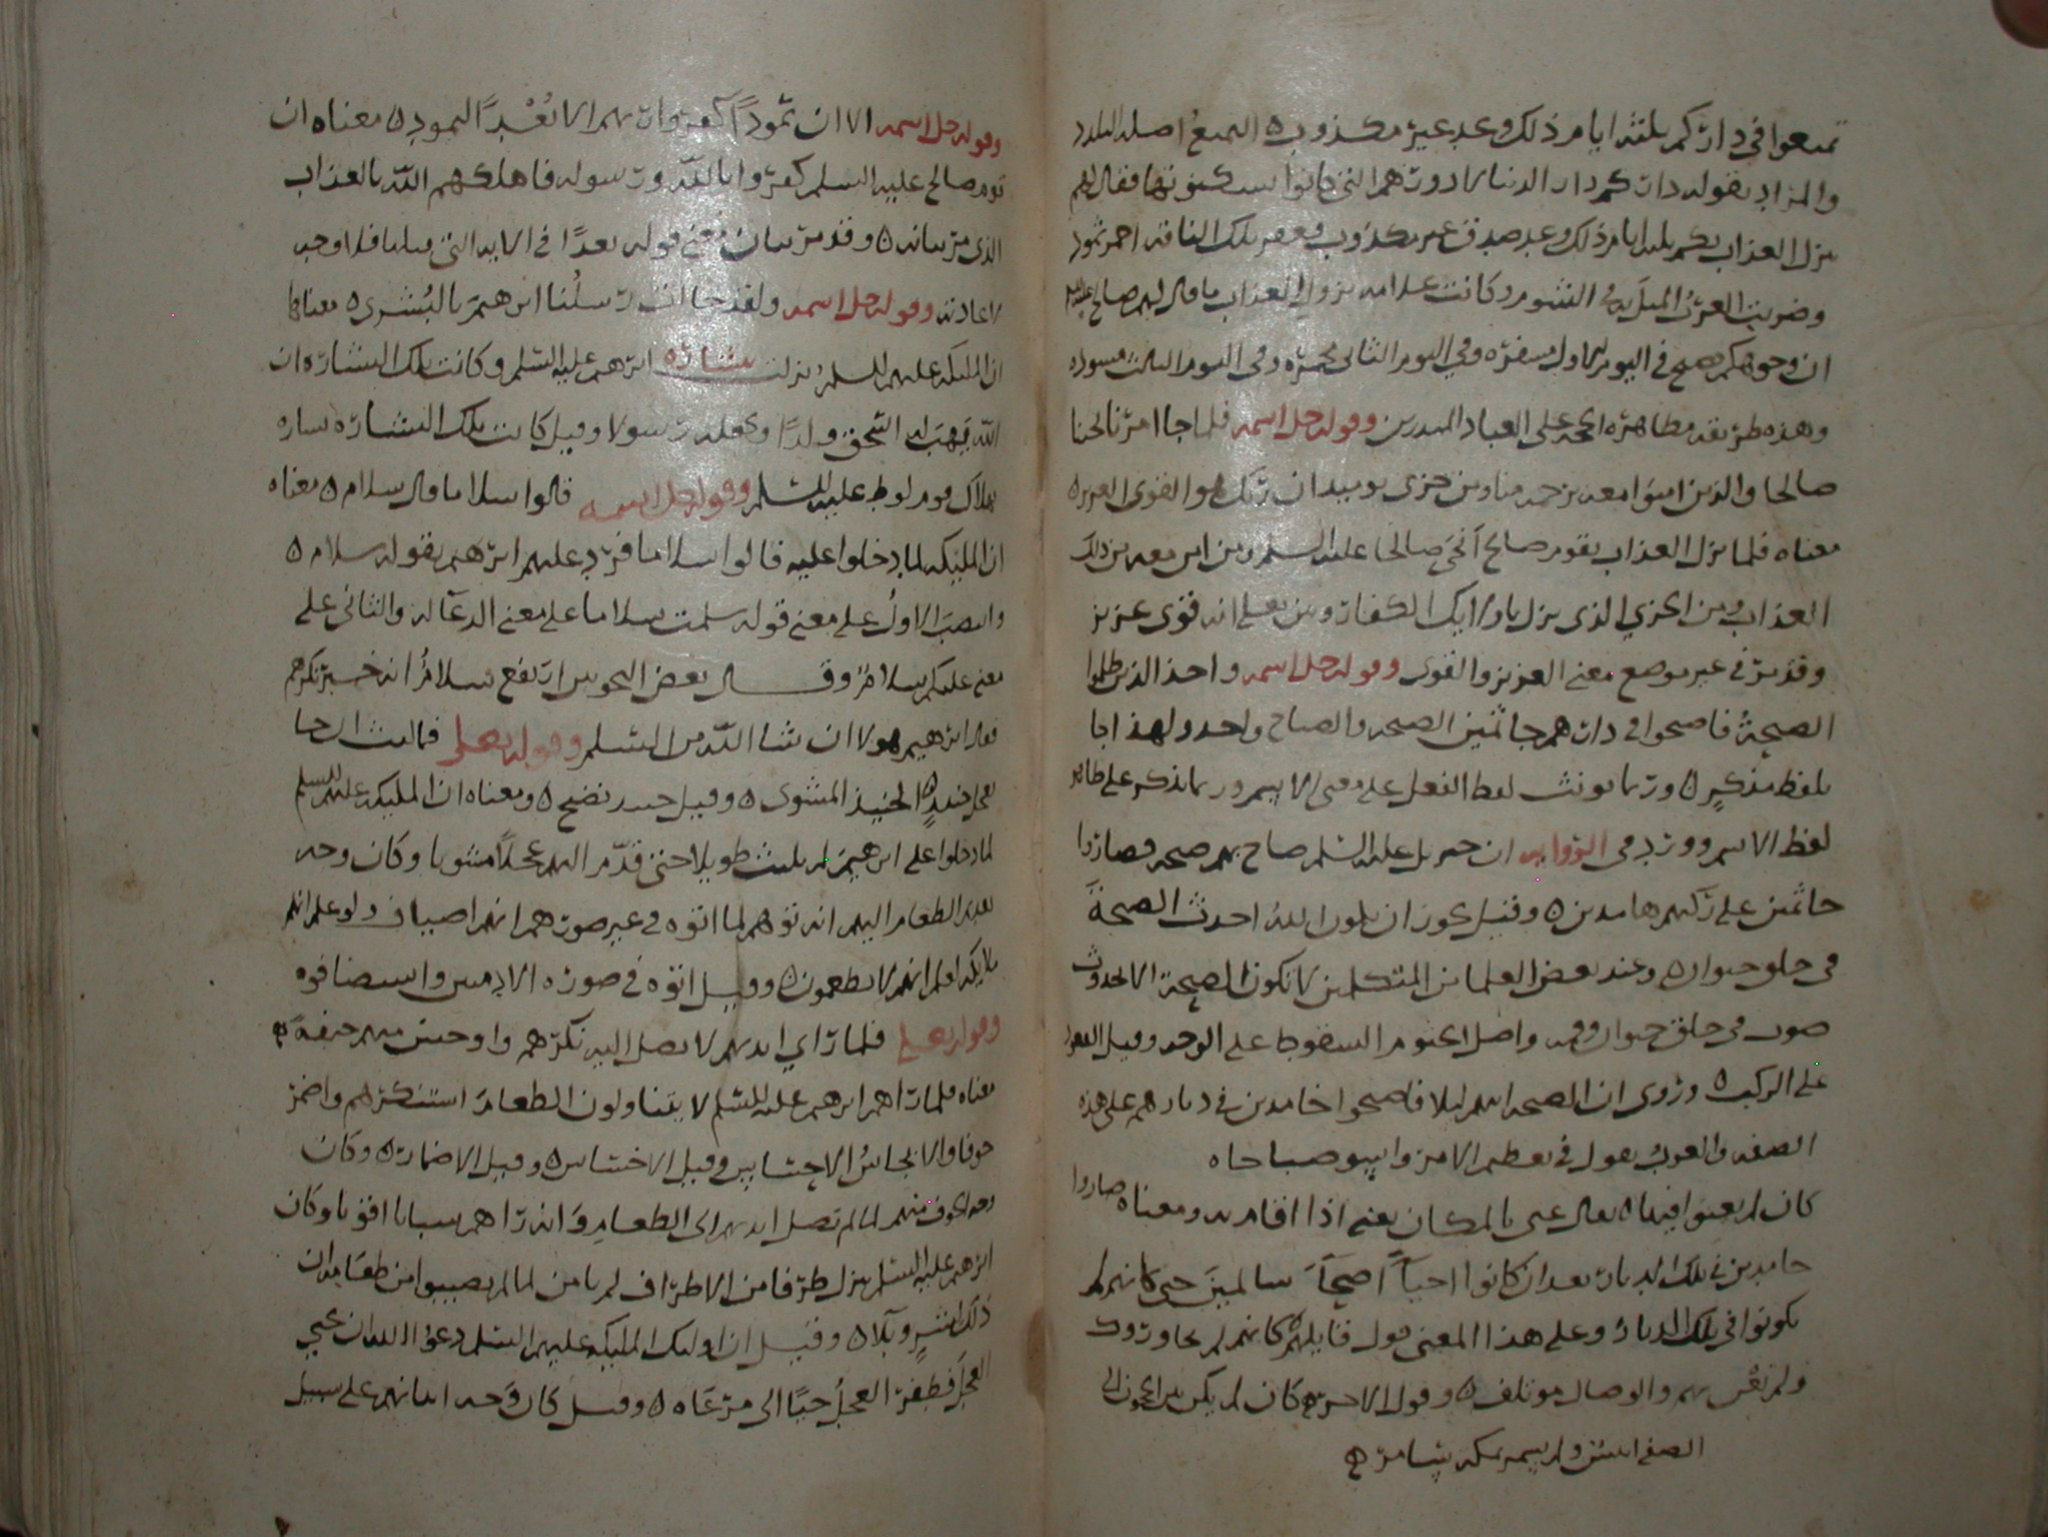 تمتعوا في داركم ثلثة ايام ذلك وعد غير مكذوب ه التمتع اصله التلذذ
والمراد بقوله داركم دار الدنيا لا دورهم التي كانوا يسكنونها فقال لهم
ينزل العذاب بكم بثلثة ايام ذلك وعد صدق غير مكذوب وعقر تلك الناقة احمر ثمود
وضربت العرب المثل به في الشوم وكانت علامة نزول العذاب ما قال لهم صالح عليه السلم
ان وجوهكم تصبح في اليوم الاول مصفرة وفي اليوم الثاني محمرة وفي اليوم الثالث مسودة
وهذه طريقة مظاهرة الحجة على العباد المنذرين وقوله جل اسمه فلما جا امرنا نجينا
صالحا والذين امنوا معه برحمة منا ومن خزي يوميذ ان ربك هو القوي العزيز ه
معناه فلما نزل العذاب بقوم صالح انجى صالحا عليه السلم ومن امن معه من ذلك
العذاب ومن الخزي الذي نزل باولايك الكفار ومن بعلم انه قوي عزيز
وقد مر في غير موضع معنى العزيز والقوي وقوله جل اسمه واخذ الذين ظلموا
الصيحة فاصبحوا في دارهم جاثمين الصيحة والصياح واحد ولهذا جا
بلفظ مذكر ه وربما يونث لفظ الفعل على معنى الاسم وربما يذكر على ظاهر
لفظ الاسم وورد في الرواية ان جبريل عليه السلم صاح بهم صيحة فصاروا
جاثمين على ركبهم هامدين ه وقيل يجوز ان يكون الله احدث الصيحة
في حلق حيوان ه وعند بعض العلما من المتكلمين لا تكون الصيحة الا لحدوث
صوت في حلق حيوان وفمه واصل الجثوم السقوط على الوجه وقيل القعود
على الركب ه وروي ان الصيحة اتتهم ليلا فاصبحوا خامدين في ديارهم على هذه
الصفة والعرب تقول في تعظيم الامر واسو صباحاه
كان لم يغنوا فيها ه يقال غني بالمكان يغنى اذا اقام به ومعناه صاروا
خامدين في تلك الديار بعد ان كانوا احياً اصحاً سالمين حتى كانهم لم
يكونوا في تلك الديار وعلى هذا المعنى قول قايلهم كانهم لم يجاوروك
ولم تغن بهم والوصال موتلف ه وقول الاخر ه كان لم يكن بين الحجون الى
الصفا انيس ولم يسمر بمكة سامر ه
وقوله جل اسمه الا ان ثمودًا كفروا ربهم الا بُعْدًا لثمود ه معناه ان
قوم صالح عليه السلم كفروا بالله ورسوله فاهلكهم الله بالعذاب
الذي مر بيانه ه وقد مر بيان معنى قوله بعدًا في الاية التي قبلها فلا وجه
لاعادته وقوله جل اسمه ولقد جاات رسلُنا ابرهيمَ بالبُشرى ه معناها
ان المليكة عليهم السلم نزلت بشارة ابرهيم عليه السلم وكانت تلك البشارة ان
الله يهب له اسحق ولدًا ويجعله رسولا وقيل كانت تلك البشارة بشارة
هلاك قوم لوط عليه السلم وقوله جل اسمه قالوا سلاما قال سلام ه معناه
ان المليكة لما دخلوا عليه قالوا سلاما فرد عليهم ابرهيم بقوله سلام ه
وانتصب الاول على معنى قوله سلمت سلاما على معنى الدعا له والثاني على
معنى عليكم سلام وقال بعض النحويين ارتفع سلامٌ انه خبر نكرهم
فقال ابرهيم هولا ان شا الله من السلم وقوله تعلى فما لبث ان جا
بعجل حنيذٍ ه الحنيذ المشوي ه وقيل حنيذ نضيج ه ومعناه ان المليكة عليهم السلم
لما دخلوا على ابرهيم لم يلبث طويلا حتى قدّم اليهم عجلاً مشويا وكان وجه
تقديم الطعام اليهم انه توهم لما اتوه في غير صورهم انهم اضياف ولو علم انهم
ملايكة لعلم انهم لا يطعمون ه وقيل اتوه في صورة الادميين واستضافوه
وقوله تعلى فلما راى ايديهم لا تصل اليه نكرهم واوجس منهم خيفةً ه
معناه فلما راهم ابرهيم عليه السلم لا يتناولون الطعام استنكرهم واضمر
خوفا والايجاسُ الاحساس وقيل الاختباس ه وقيل الاضمار ه وكان
وجه الخوف منهم لما لم تصل ايديهم الى الطعام وانه راهم شبابا اقويا وكان
ابرهيم عليه السلم ينزل طرفا من الاطراف لم يامن لما لم يصيبوا من طعامه ان
ذلك لشرٍ وبلا ه وقيل ان اوليك المليكة عليهم السلم دعوا الله ان يحيي
العجل فطفر العجلُ حيًا الى مرعاه ه وقيل كان وجه ايمانهم على سبيل